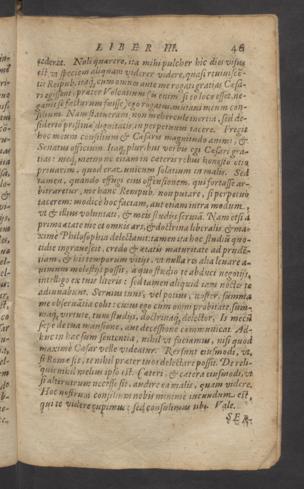 LIBER III. 46
cederet. Noli quærere, ita mihi pulcher hic dies visus
est, vt speciem aliquam viderer videre, quasi reuiuiscē-
tis Reipub. itaq; cum omnes ante me rogati gratias Cæsa-
ri egissent, præter Volcatium (is enim si eo loco esset, ne-
garet se facturum fuisse) ego rogatus, mutaui meum con-
silium. Nam statueram, non mehercule inertia, sed de-
siderio pristinæ dignitatis, in perpetuum tacere. Fregit
hoc meum consilium & Cæsaris magnitudo animi, &
Senatus officium. Itaq; pluribus verbis egi Cæsari gra-
tias: meq; metuo ne etiam in ceteris rebus honesto otio
priuarim, quod erat vnicum solatium in malis. Sed
tamen, quando effugi eius offensionem, qui fortasse ar-
bitraretur, me hanc Rempub. non putare, si perpetuò
tacerem: modicè hoc faciam, aut etiam intra modum,
vt & illius voluntati, & meis studijs seruiā. Nam etsi à
prima ætate me omnis ars, & doctrina liberalis & ma-
ximè Philosophia delectauit: tamen hoc studiū quo-
tidie ingrauescit, credo & ætatis maturitate ad prudē-
tiam, & his temporum vitijs, vt nulla res alia leuare a-
nimum molestijs possit, à quo studio te abduci negotijs,
intelligo ex tuis literis: sed tamen aliquid iam noctes te
adiuuabunt. Seruius tuus, vel potius, noster, summa
me obseruātia colit: cuius ego cum omni probitate, sum-
maq; virtute, tum studijs, doctrinaq; delector. Is mecū
sæpe de tua mansione, aut decessione communicat. Ad-
huc in hac sum sententia, nihil vt faciamus, nisi quod
maximè Cæsar velle videatur. Res sunt eiusmodi, vt,
si Romæ sis, te nihil præter tuos delectare possit. De reli-
quis nihil melius ipso est. Cæteri, & cætera eiusmodi, vt
si alterutrum necesse sit, audire ea malis, quàm videre.
Hoc nostrum consilium nobis minimè iucundum est,
qui te videre cupimus: sed consulimus tibi. Vale.
SER.